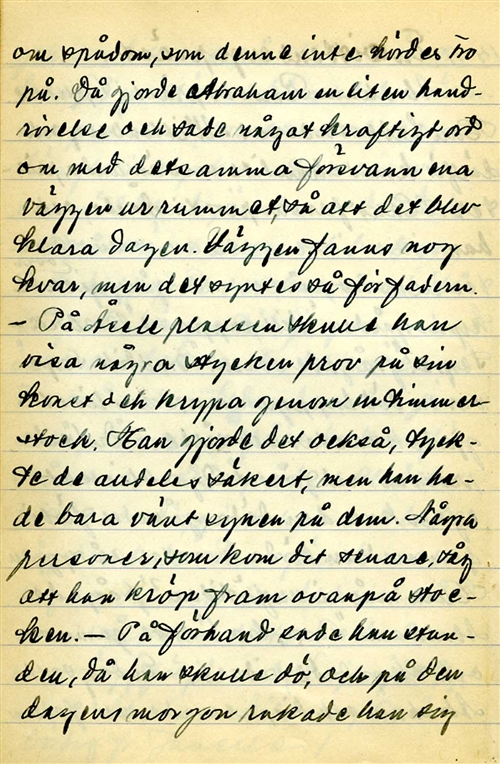 om spådom, som denne inte hördes tro
på. Då gjorde Abraham en liten hand-
rörelse och sade något kraftigt ord
om med detsamma försvann ena
väggen ur rummet, så att det blev
klara dagen. Väggen fanns nog
kvar, men det syntes så för fadern.
– På Åsele platsen skulle han
visa några stycken prov på sin
konst och krypa genom en timmer-
stock. Han gjorde det också, tyck-
te de andeles säkert, men han ha-
de bara vänt synen på dem. Några
personer, som kom dit senare, såg
att han kröp fram ovanpå stoc-
ken. – På förhand sade han stun-
den, då han skulle dö, och på den
dagens morgon rakade han sig